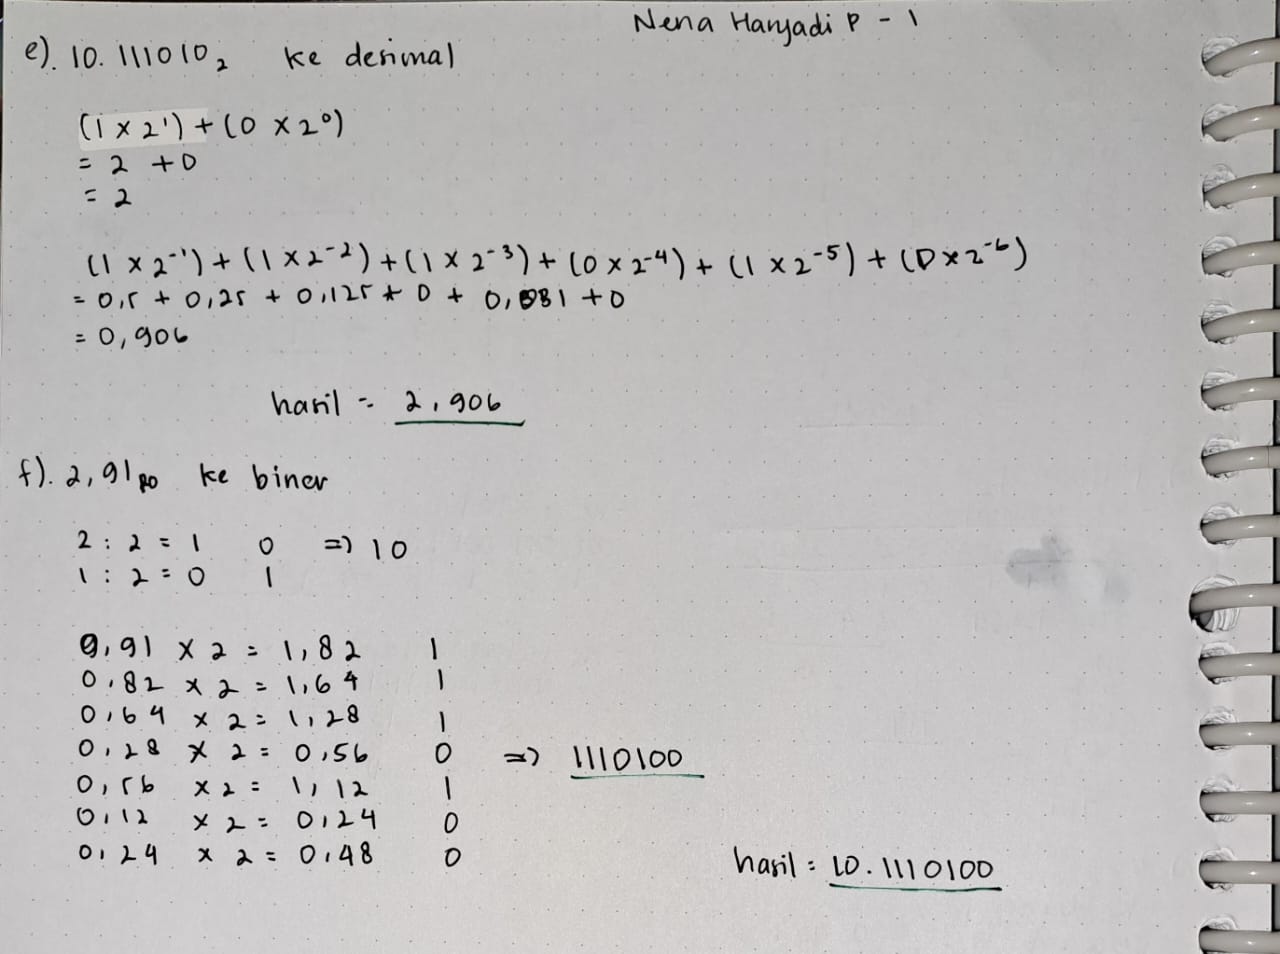 Nena Haryadi P - 1
e). 10.111010₂ ke desimal
(1 x 2¹) + (0 x 2⁰)
= 2 + 0
= 2
(1 x 2⁻¹) + (1 x 2⁻²) + (1 x 2⁻³) + (0 x 2⁻⁴) + (1 x 2⁻⁵) + (0 x 2⁻⁶)
= 0,5 + 0,25 + 0,125 + 0 + 0,031 + 0
= 0,906
hasil = 2,906
f). 2,91₁₀ ke biner
2 : 2 = 1 0 => 10
1 : 2 = 0 1
0,91 x 2 = 1,82 1
0,82 x 2 = 1,64 1
0,64 x 2 = 1,28 1
0,28 x 2 = 0,56 0 => 1110100
0,56 x 2 = 1,12 1
0,12 x 2 = 0,24 0
0,24 x 2 = 0,48 0
hasil = 10.1110100